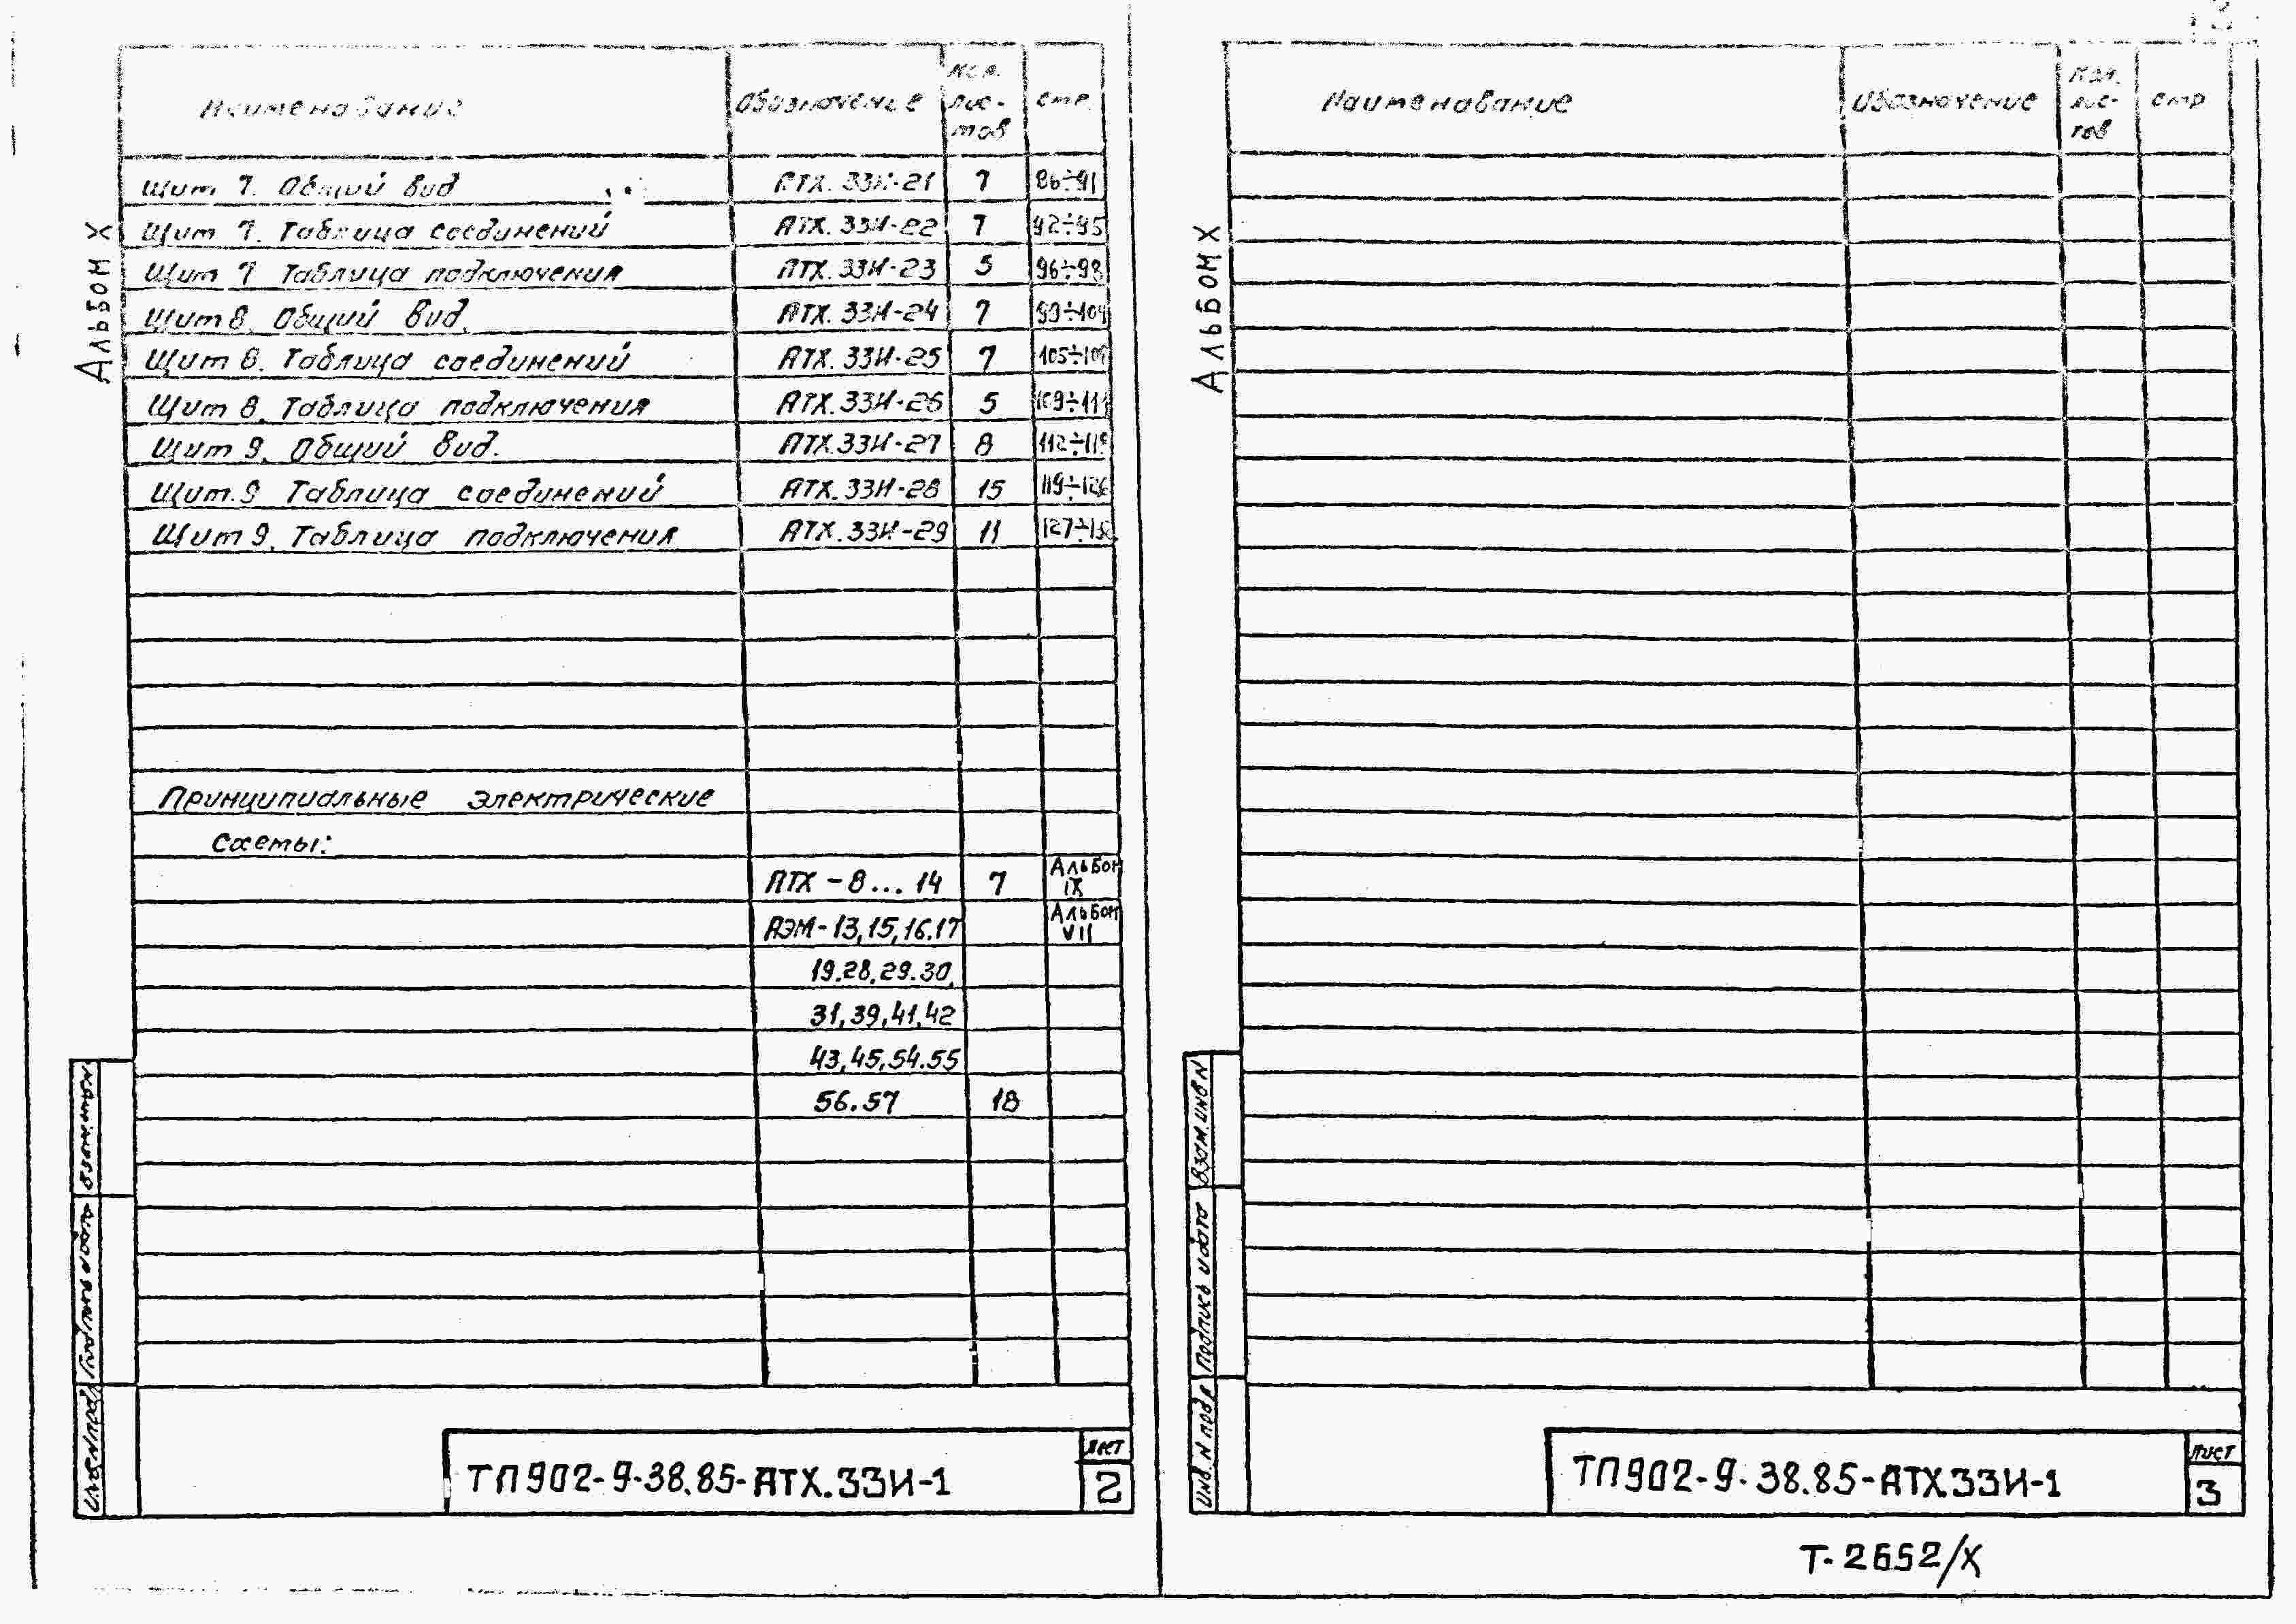 Альбом X
Наименование Обозначение Кол. лис-тов стр.
Щит 7. Общий вид АТХ.ЗЗИ-21 7 86÷91
Щит 7. Таблица соединений АТХ.ЗЗИ-22 7 92÷95
Щит 7 Таблица подключения АТХ.ЗЗИ-23 5 96÷98
Щит 8. Общий вид. АТХ.ЗЗИ-24 7 99÷104
Щит 8. Таблица соединений АТХ.ЗЗИ-25 7
Щит 8. Таблица подключения АТХ.ЗЗИ-26 5 109÷111
Щит 9. Общий вид. АТХ.ЗЗИ-27 8
Щит.9 Таблица соединений АТХ.ЗЗИ-28 15 119÷126
Щит 9. Таблица подключения АТХ.ЗЗИ-29 11
Принципиальные электрические
схемы:
АТХ-8...14 7 Альбом IX
АЭМ-13,15,16.17 Альбом VII
19.28,29.30,
31,39,41,42
43,45,54.55
56.57 18
Взам.инв N
Подпись и дата
Инв.N подл
ТП902-9-38.85-АТХ.ЗЗИ-1
Лист
2
Альбом X
Наименование Обозначение Кол. лис-тов стр
Взам.инв N
Подпись и дата
Инв.N подл
ТП902-9-38.85-АТХ.ЗЗИ-1
Лист
3
Т-2652/X